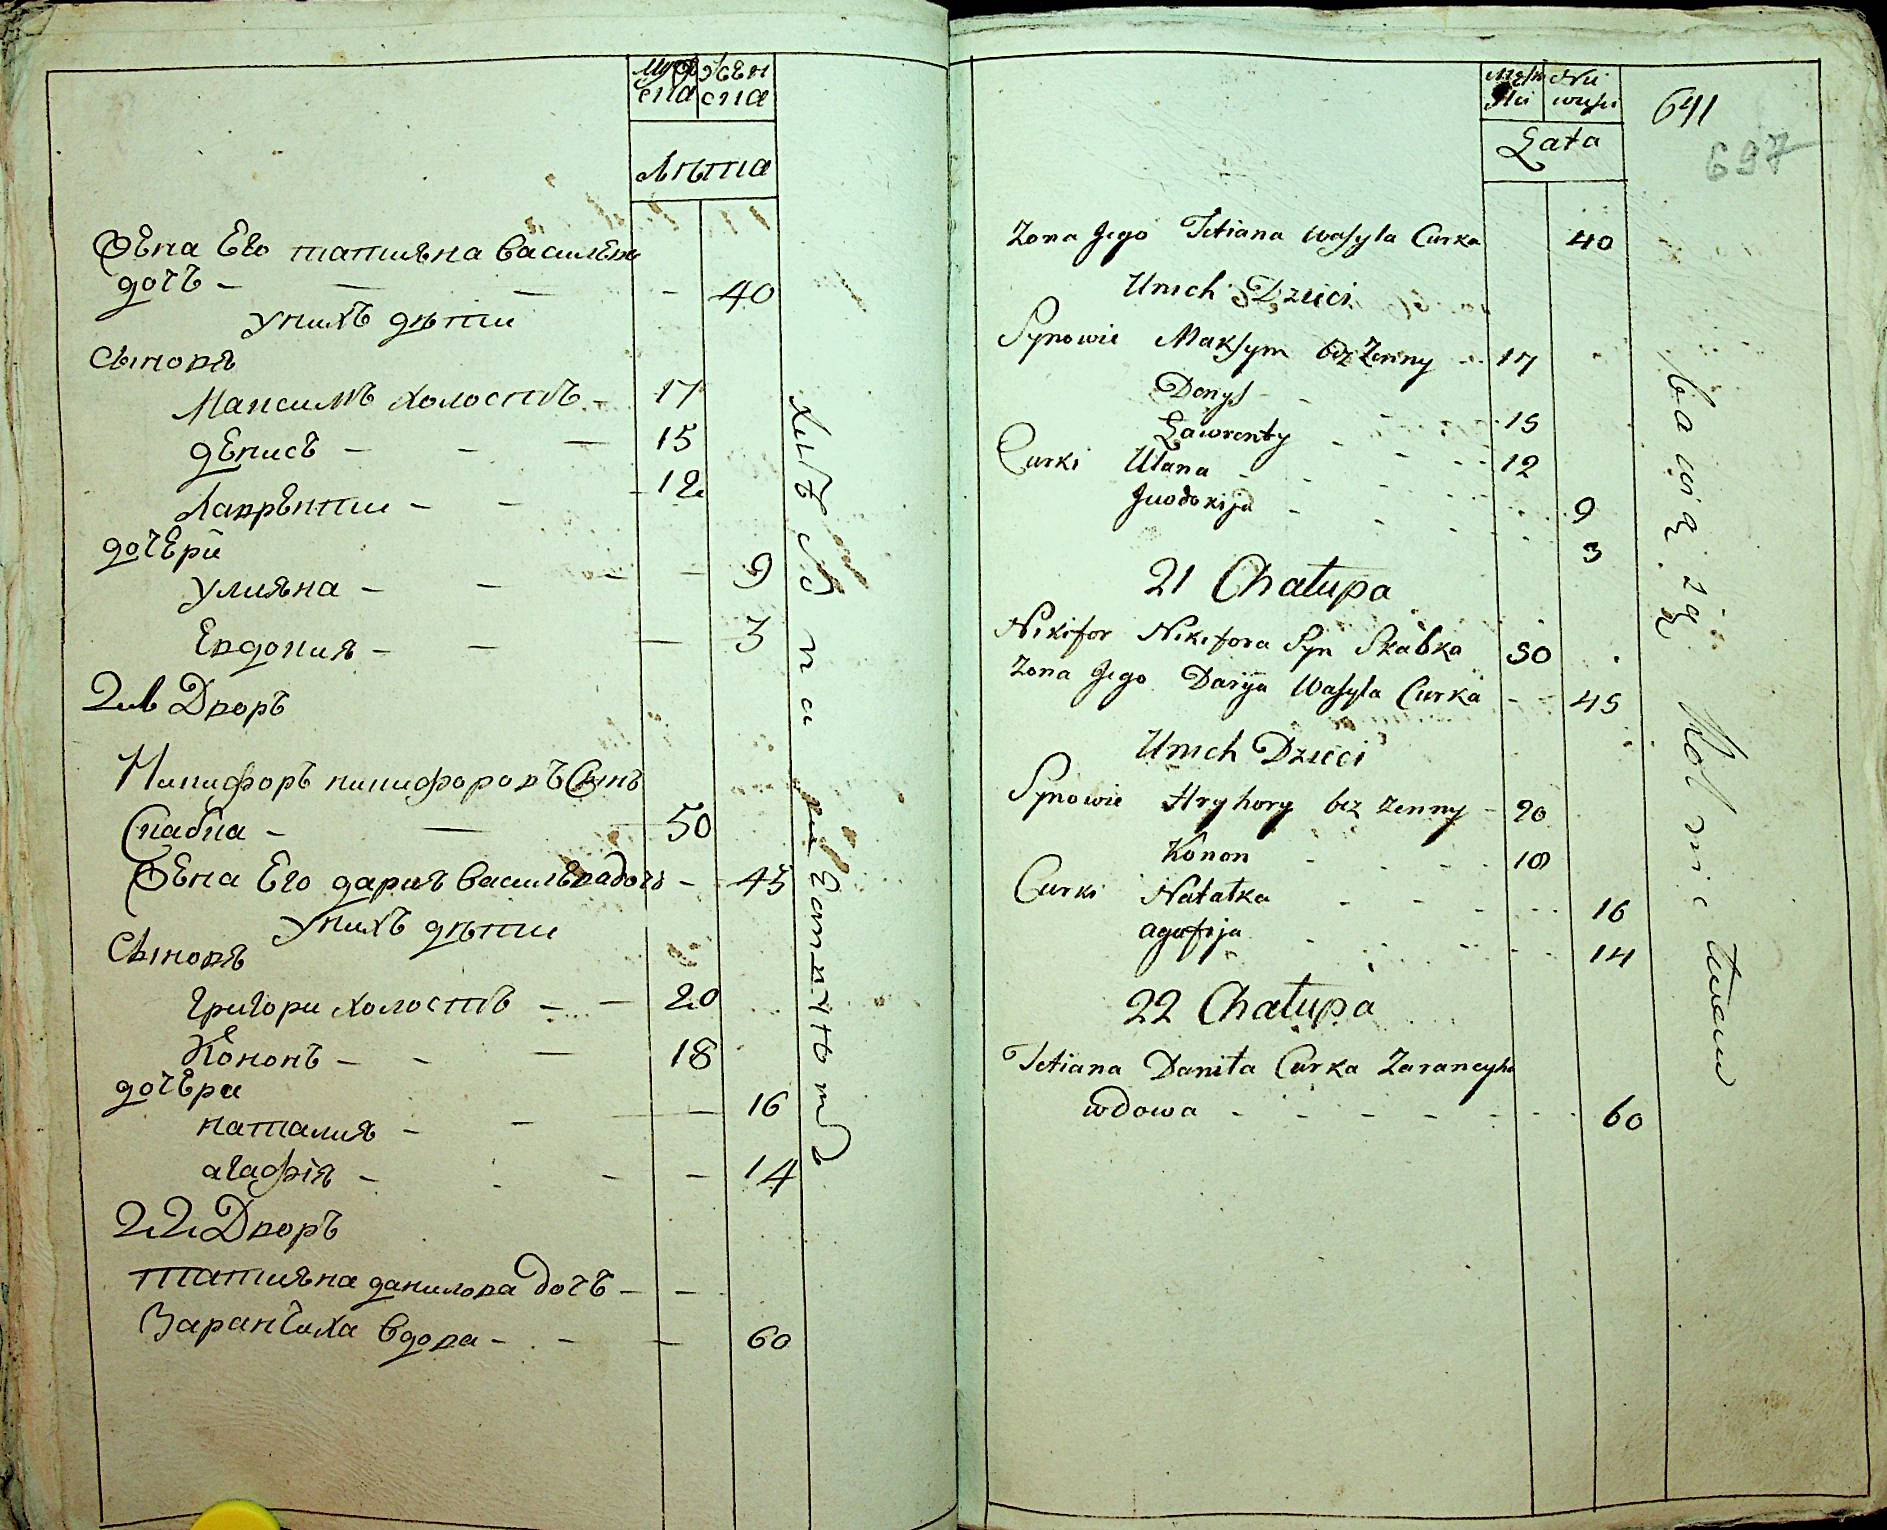 Муже
ска
Жен
ска
Лѣта
Жена Его татияна василева
дочь - 40
У нихъ дѣти
Сыновя
Максимъ холостъ - 17
денисъ - 15
Лаврѣнти - 12
дочЕри
улияна - 9
Евдокия - 3
21 Дворъ
Никифоръ никифоровъ Сынъ
Скабка - 50
Жена Его дария василева дочь - 45
У нихъ дѣти
Сыновя
григори холостъ - 20
Кононъ - 18
дочЕри
наталия - 16
агафія - 14
22 Дворъ
татияна данилова дочь -
Заранчиха вдова - 60
хлѣбопа
Męzk
Skie
Nie
wiescie
Łata
641
697
Zona Jego Tetiana Wasyla Curka 40
Unich Dzieci
Synowie Maksym bez Zenny 17
Denys 15
Ławrenty 12
Curki Ulana 9
Jwdokija 3
21 Chałupa
Nikifor Nikifora Syn Skabka 50
Zona Jego Daryja Wasyla Curka 45
Unich Dzieci
Synowie Hryhory bez Zenny 20
Konon 18
Curki Natałka 16
agafija 14
22 Chałupa
Tetiana Daniła Curka Zarancycha
wdowa 60
bawią się Rolnictwem